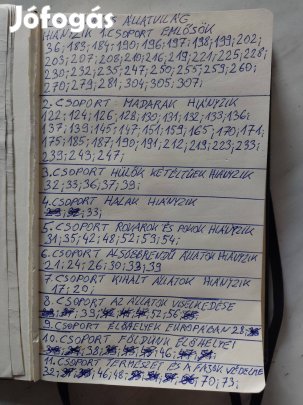 Jófogás
ÁLLATVILÁG
HIÁNYZIK 1.CSOPORT EMLŐSÖK
36; 185; 184; 190; 196; 197; 198; 199; 202;
203; 207; 208; 210; 216; 219; 221; 225; 228;
230; 232; 235; 247; 250; 255; 259; 260;
270; 279; 281; 304; 305; 307;
2. CSOPORT MADARAK HIÁNYZIK
122; 124; 126; 128; 130; 131; 132; 133; 136;
137; 139; 145; 147; 151; 159; 165; 170; 171;
175; 185; 187; 190; 191; 212; 219; 223; 233;
239; 243; 247;
3. CSOPORT HÜLŐK KÉTÉLTŰEK HIÁNYZIK
32; 33; 36; 37; 39;
4. CSOPORT HALAK HIÁNYZIK
33;
5. CSOPORT ROVAROK ÉS PÓKOK HIÁNYZIK
31; 35; 42; 48; 52; 53; 54;
6. CSOPORT ALSÓBBRENDŰ ÁLLATOK HIÁNYZIK
21; 24; 26; 30; 33; 39
7. CSOPORT KIHALT ÁLLATOK HIÁNYZIK
17; 20;
8. CSOPORT AZ ÁLLATOK VISELKEDÉSE
39; 52; 56;
9. CSOPORT ÉLŐHELYEK EURÓPÁBAN 28;
10. CSOPORT FÖLDÜNK ÉLŐHELYEI
38; 46;
11. CSOPORT TERMÉSZET ÉS A FAJOK VÉDELME
32; 46; 48; 70; 73;